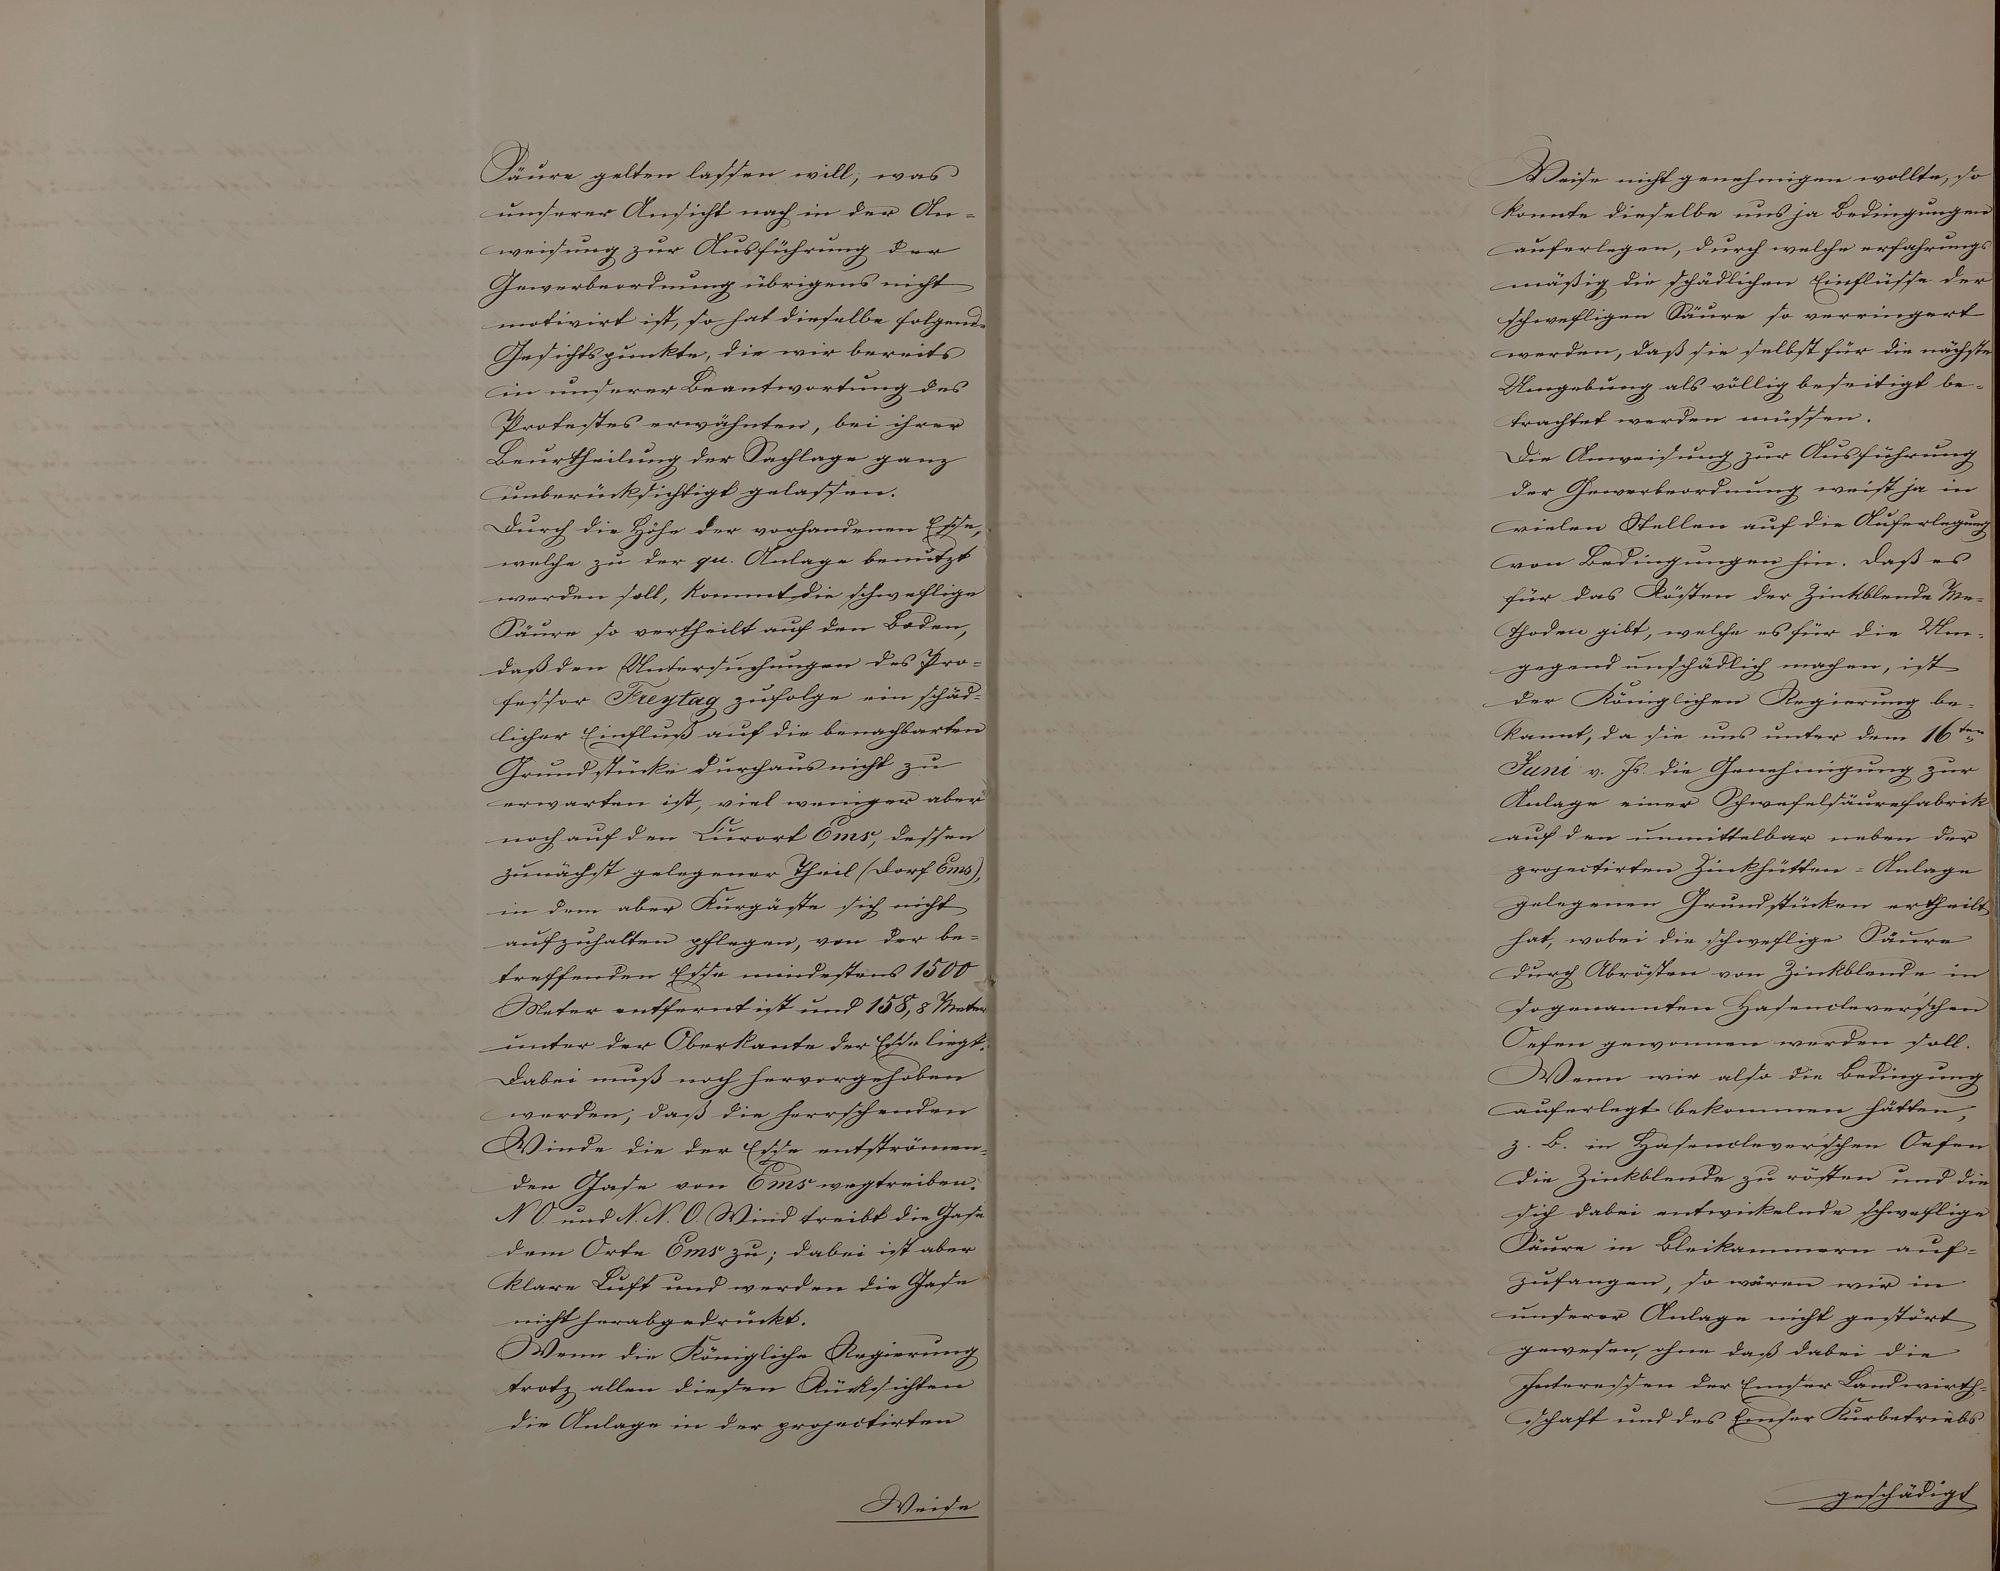 Säure gelten lassen will, was
unserer Ansicht nach in der An-
weisung zur Ausführung der
Gewerbeordnung übrigens nicht
motivirt ist, so hat dieselbe folgende
Gesichtspunkte, die wir bereits
in unserer Beantwortung des
Protestes erwähnten, bei ihrer
Beurtheilung der Sachlage ganz
unberücksichtigt gelassen.
Durch die Höhe der vorhandenen Esse,
welche zu der qu. Anlage benutzt
werden soll, kommt die schweflige
Säure so vertheilt auf den Boden,
daß den Untersuchungen des Pro-
fessor Freytag zufolge ein schäd-
licher Einfluß auf die benachbarten
Grundstücke durchaus nicht zu
erwarten ist, viel weniger aber
noch auf den Curort Ems, dessen
zunächst gelegener Theil (Dorf Ems),
in dem aber Kurgäste sich nicht
aufzuhalten pflegen, von der be-
treffenden Esse mindestens 1500
Meter entfernt ist und 158,8 Meter
unter der Oberkante der Esse liegt.
Dabei muß noch hervorgehoben
werden, daß die herrschenden
Winde die der Esse entströmen-
den Gase von Ems wegtreiben.
N O. und N. N. O. Wind treibt die Gase
dem Orte Ems zu; dabei ist aber
klare Luft und werden die Gase
nicht herabgedrückt.
Wenn die Königliche Regierung
trotz allen diesen Rücksichten
die Anlage in der projectirten
Weise
Weise nicht genehmigen wollte, so
konnte dieselbe uns ja Bedingungen
auferlegen, durch welche erfahrungs
mäßig die schädlichen Einflüsse der
schwefligen Säure so verringert
werden, daß sie selbst für die nächste
Umgebung als völlig beseitigt be-
trachtet werden müssen.
Die Anweisung zur Ausführung
der Gewerbeordnung weist ja in
vielen Stellen auf die Auferlegung
von Bedingungen hin. Daß es
für das Rösten der Zinkblende Me-
thoden gibt, welche es für die Um-
gegend unschädlich machen, ist
der Königlichen Regierung be-
kannt, da sie uns unter dem 16ten
Juni v. Js. die Genehmigung zur
Anlage einer Schwefelsäurefabrik
auf den unmittelbar neben der
projectirten Zinkhütten-Anlage
gelegenen Grundstücken ertheilt
hat, wobei die schweflige Säure
durch Abrösten von Zinkblende in
sogenannten Hasenclever'schen
Oefen gewonnen werden soll.
Wenn wir also die Bedingung
auferlegt bekommen hätten,
z. B. in Hasenclever'schen Oefen
die Zinkblende zu rösten und die
sich dabei entwickelnde schweflige
Säure in Bleikammern auf-
zufangen, so wären wir in
unserer Anlage nicht gestört
gewesen, ohne daß dabei die
Interessen der Emser Landwirth-
schaft und des Emser Kurbetriebs
geschädigt